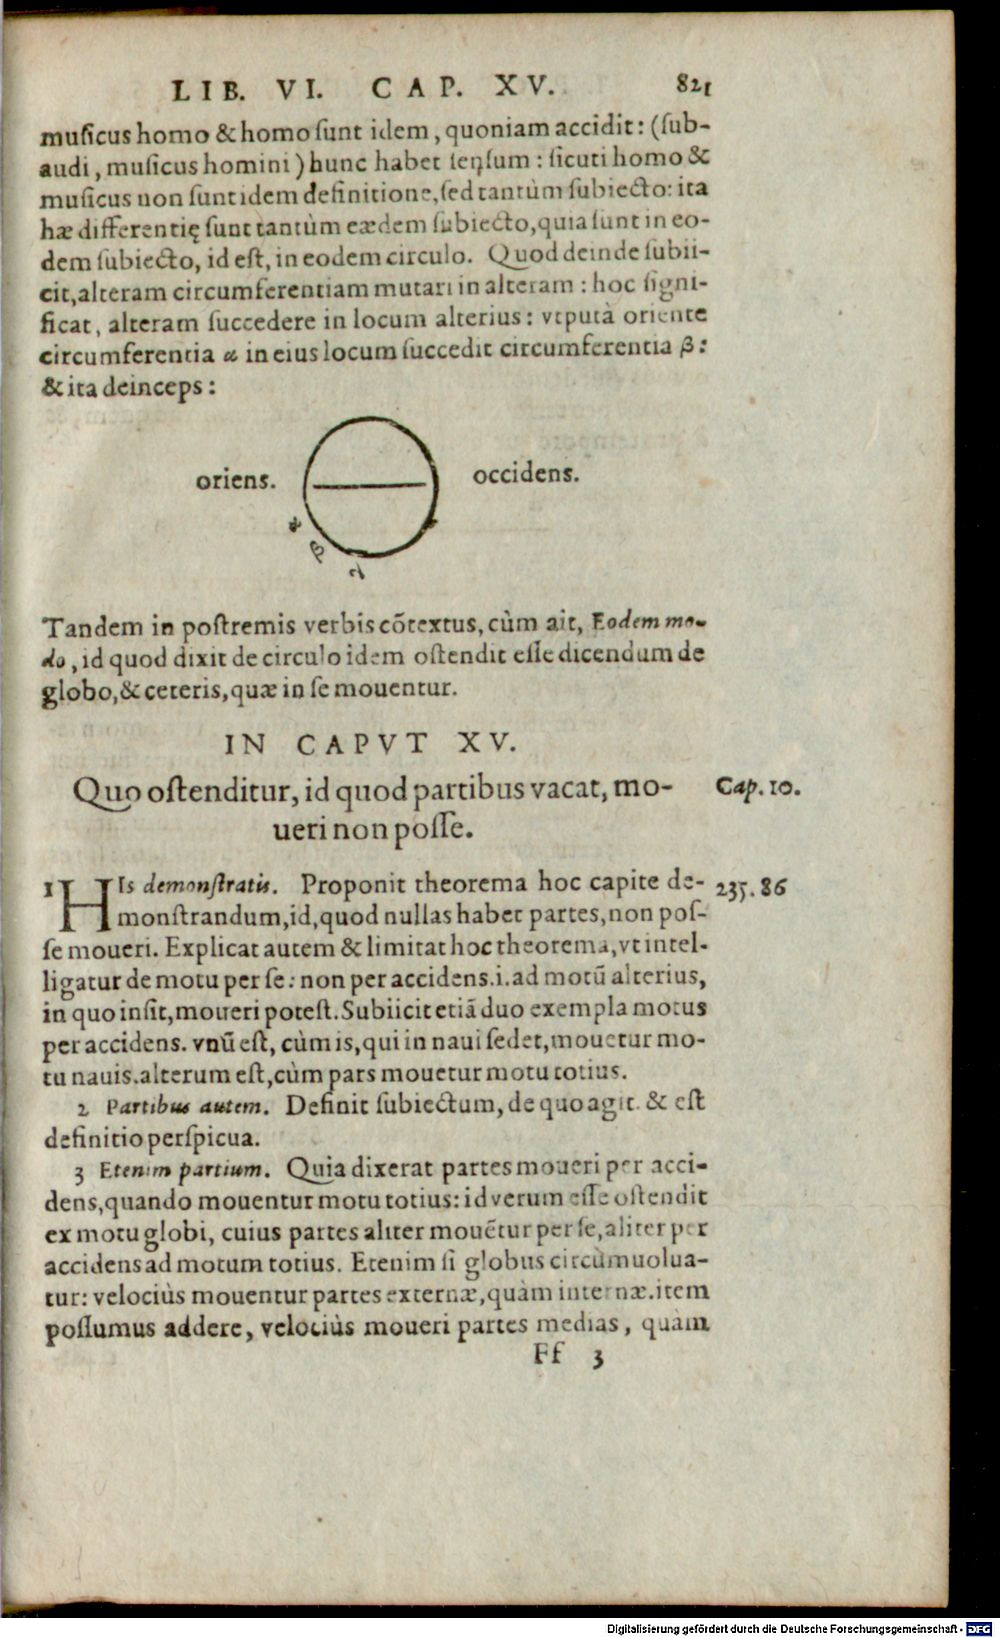 LIB. VI. CAP. XV. 821
musicus homo & homo sunt idem, quoniam accidit: (sub-
audi, musicus homini) hunc habet sensum: sicuti homo &
musicus non sunt idem definitione, sed tantùm subiecto: ita
hæ differentię sunt tantùm eædem subiecto, quia sunt in eo-
dem subiecto, id est, in eodem circulo. Quod deinde subii-
cit, alteram circumferentiam mutari in alteram: hoc signi-
ficat, alteram succedere in locum alterius: vtputà oriente
circumferentia α in eius locum succedit circumferentia β:
& ita deinceps:
oriens. occidens.
α
β
γ
Tandem in postremis verbis cōtextus, cùm ait, Eodem mo-
do, id quod dixit de circulo idem ostendit esse dicendum de
globo, & ceteris, quæ in se mouentur.
IN CAPVT XV.
Quo ostenditur, id quod partibus vacat, mo- Cap. 10.
ueri non posse.
1 HIs demonstratis. Proponit theorema hoc capite de- 235. 86
monstrandum, id, quod nullas habet partes, non pos-
se moueri. Explicat autem & limitat hoc theorema, vt intel-
ligatur de motu per se: non per accidens .i. ad motū alterius,
in quo insit, moueri potest. Subiicit etiā duo exempla motus
per accidens. vnū est, cùm is, qui in naui sedet, mouetur mo-
tu nauis. alterum est, cùm pars mouetur motu totius.
2 Partibus autem. Definit subiectum, de quo agit. & est
definitio perspicua.
3 Etenim partium. Quia dixerat partes moueri per acci-
dens, quando mouentur motu totius: id verum esse ostendit
ex motu globi, cuius partes aliter mouētur per se, aliter per
accidens ad motum totius. Etenim si globus circùmuolua-
tur: velociùs mouentur partes externæ, quàm internæ. item
possumus addere, velociùs moueri partes medias, quàm
Ff 3
Digitalisierung gefördert durch die Deutsche Forschungsgemeinschaft - DFG